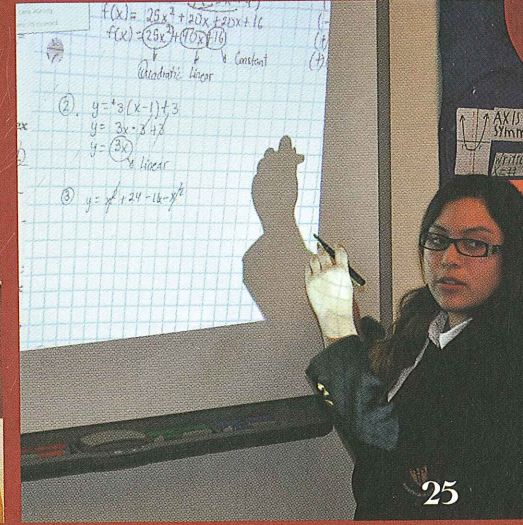 f(x) = 25x² + 20x + 20x + 16
f(x) = 25x² + 40x + 16
Quadratic Linear Constant
② y = 3(x-1)+3
y = 3x - 3 + 3
y = 3x
Linear
③ y = x² + 24 - 16 - x²
AXIS
SYMM
25